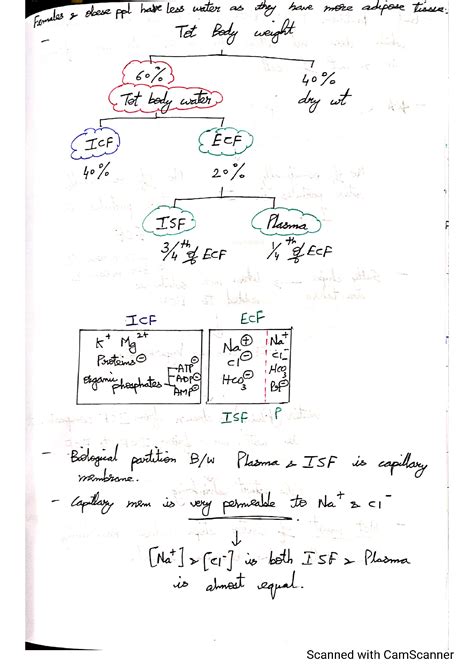 Females & obese ppl have less water as they have more adipose tissue.
Tot Body weight
60% 40%
Tot body water dry wt
ICF ECF
40% 20%
ISF Plasma
3/4th of ECF 1/4th of ECF
ICF ECF
K+ Mg2+
Proteins⊖
organic phosphates
ATP⊖
ADP⊖
AMP⊖
Na⊕
Cl⊖
HCO3⊖
Na+
Cl-
HCO3
ISF P
- Biological partition B/W Plasma & ISF is capillary
membrane.
- Capillary mem is very permeable to Na+ & Cl-
↓
[Na+] & [Cl-] is both ISF & Plasma
is almost equal.
Scanned with CamScanner